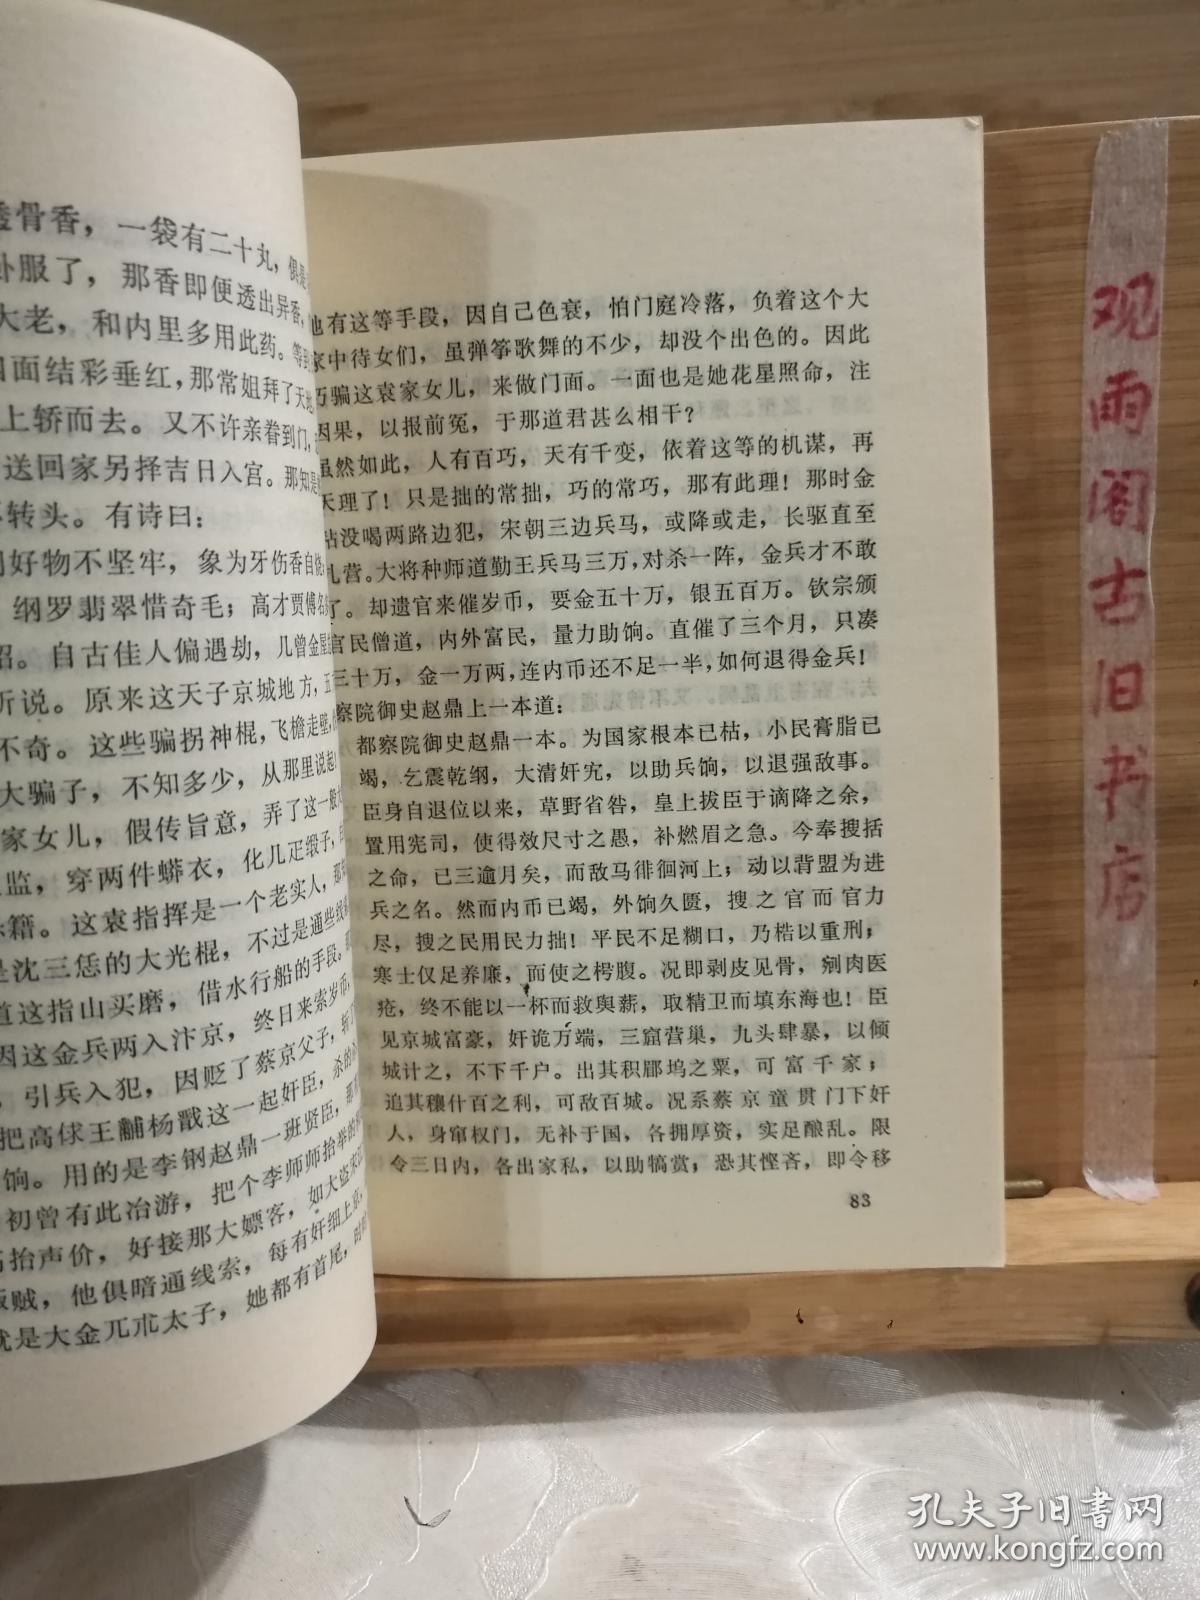 透骨香，一袋有二十丸，俱是
卦服了，那香即便透出异香，
大老，和内里多用此药。等到
面结彩垂红，那常姐拜了天地，
上轿而去。又不许亲眷到门，
送回家另择吉日入宫。那知是
转头。有诗曰：
好物不坚牢，象为牙伤香自烧，
纲罗翡翠惜奇毛；高才贾傅名
。自古佳人偏遇劫，几曾金屋
所说。原来这天子京城地方，五
不奇。这些骗拐神棍，飞檐走壁，
大骗子，不知多少，从那里说起！
家女儿，假传旨意，弄了这一般
监，穿两件蟒衣，化几疋缎子，
籍。这袁指挥是一个老实人，那
是沈三恁的大光棍，不过是通些线
道这指山买磨，借水行船的手段。
因这金兵两入汴京，终日来索岁币，
，引兵入犯，因贬了蔡京父子，斩了
把高俅王黼杨戬这一起奸臣，杀的
饷。用的是李钢赵鼎一班贤臣，那
初曾有此冶游，把个李师师抬举的
高抬声价，好接那大嫖客，如大盗宋江，
叛贼，他俱暗通线索，每有奸细上京，
就是大金兀朮太子，她都有首尾，时
他有这等手段，因自己色衰，怕门庭冷落，负着这个大
家中待女们，虽弹筝歌舞的不少，却没个出色的。因此
巧骗这袁家女儿，来做门面。一面也是她花星照命，注
因果，以报前冤，于那道君甚么相干？
虽然如此，人有百巧，天有千变，依着这等的机谋，再
天理了！只是拙的常拙，巧的常巧，那有此理！那时金
粘没喝两路边犯，宋朝三边兵马，或降或走，长驱直至
扎营。大将种师道勤王兵马三万，对杀一阵，金兵才不敢
了。却遗官来催岁币，要金五十万，银五百万。钦宗颁
官民僧道，内外富民，量力助饷。直催了三个月，只凑
三十万，金一万两，连内币还不足一半，如何退得金兵！
察院御史赵鼎上一本道：
都察院御史赵鼎一本。为国家根本已枯，小民膏脂已
竭，乞震乾纲，大清奸宄，以助兵饷，以退强敌事。
臣身自退位以来，草野省咎，皇上拔臣于谪降之余，
置用宪司，使得效尺寸之愚，补燃眉之急。今奉搜括
之命，已三逾月矣，而敌马徘徊河上；动以背盟为进
兵之名。然而内币已竭，外饷久匮，搜之官而官力
尽，搜之民用民力拙！平民不足糊口，乃梏以重刑；
寒士仅足养廉，而使之枵腹。况即剥皮见骨，剜肉医
疮，终不能以一杯而救舆薪，取精卫而填东海也！臣
见京城富豪，奸诡万端，三窟营巢，九头肆暴，以倾
城计之，不下千户。出其积郿坞之粟，可富千家；
追其穰什百之利，可敌百城。况系蔡京童贯门下奸
人，身窜权门，无补于国，各拥厚资，实足酿乱。限
令三日内，各出家私，以助犒赏；恐其悭吝，即令移
83
观雨阁古旧书店
孔夫子旧書网
www.kongfz.com